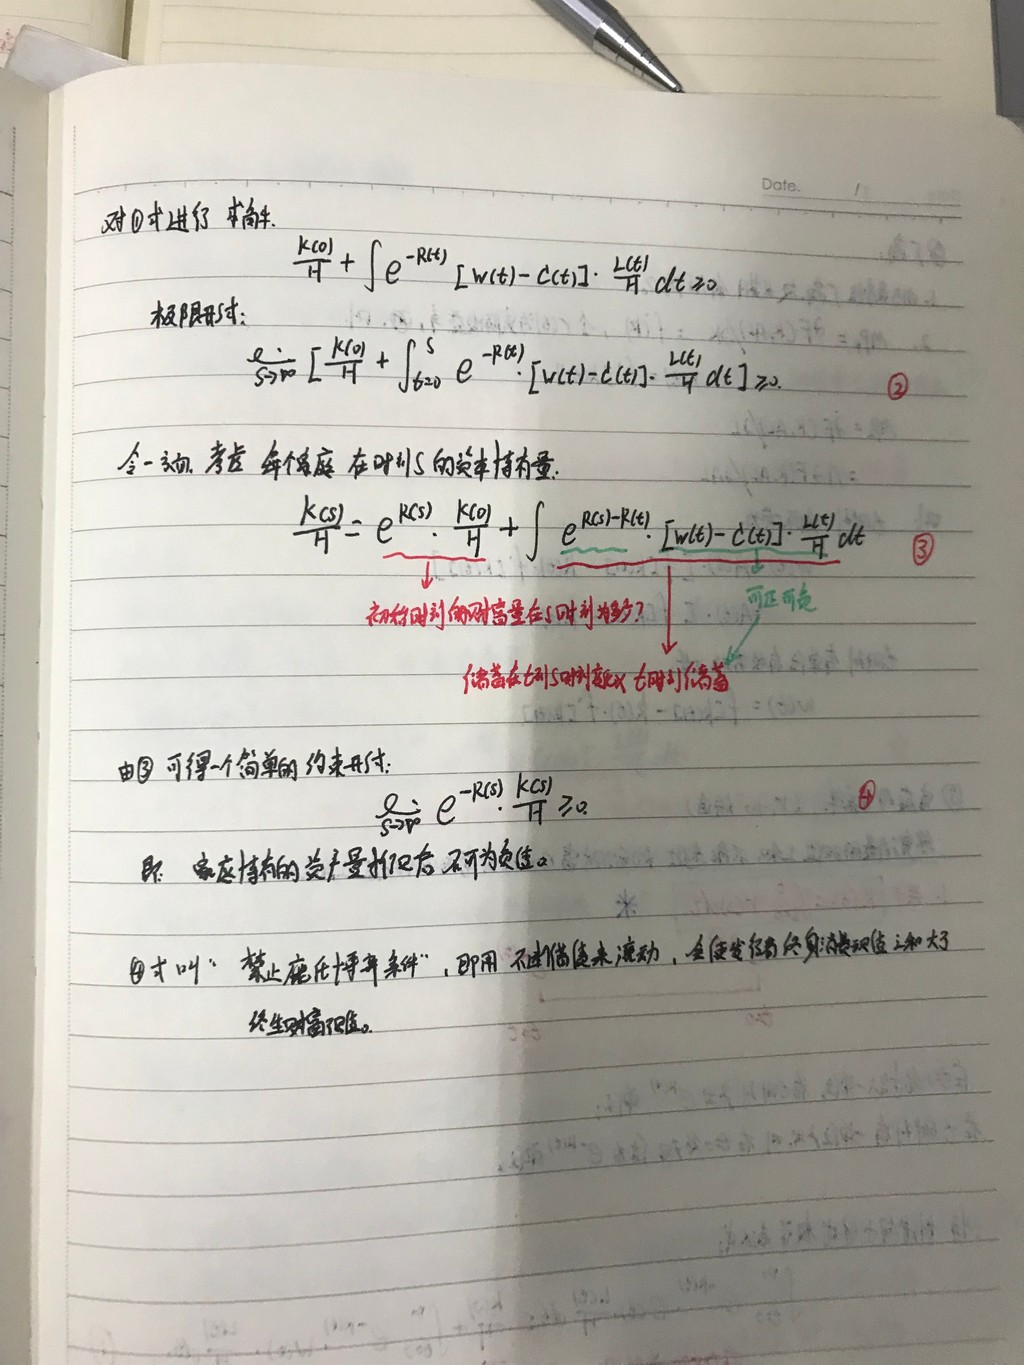 Date. /
对①式进行求解.
K(0)/H + ∫ e^{-R(t)} [W(t)-C(t)]· L(t)/H dt ≥0
极限形式:
lim_{s→∞} [K(0)/H + ∫_{t=0}^{s} e^{-R(t)}·[W(t)-C(t)]· L(t)/H dt] ≥0. ②
令一方面, 考虑 每个家庭 在时刻S的资本持有量.
K(s)/H = e^{R(s)}· K(0)/H + ∫ e^{R(s)-R(t)}·[W(t)-C(t)]· L(t)/H dt ③
可正可负
初始时刻的财富量在S时刻为多少?
储蓄在t到S时刻 t时刻储蓄
由③可得一个简单的约束形式:
lim_{s→∞} e^{-R(s)}· K(s)/H ≥0. ④
即: 家庭持有的资产量折现后不可为负值。
④式叫"禁止庞氏博弈条件", 即用不断借债来滚动, 会使发行者终身消费现值之和大于
终生财富现值。